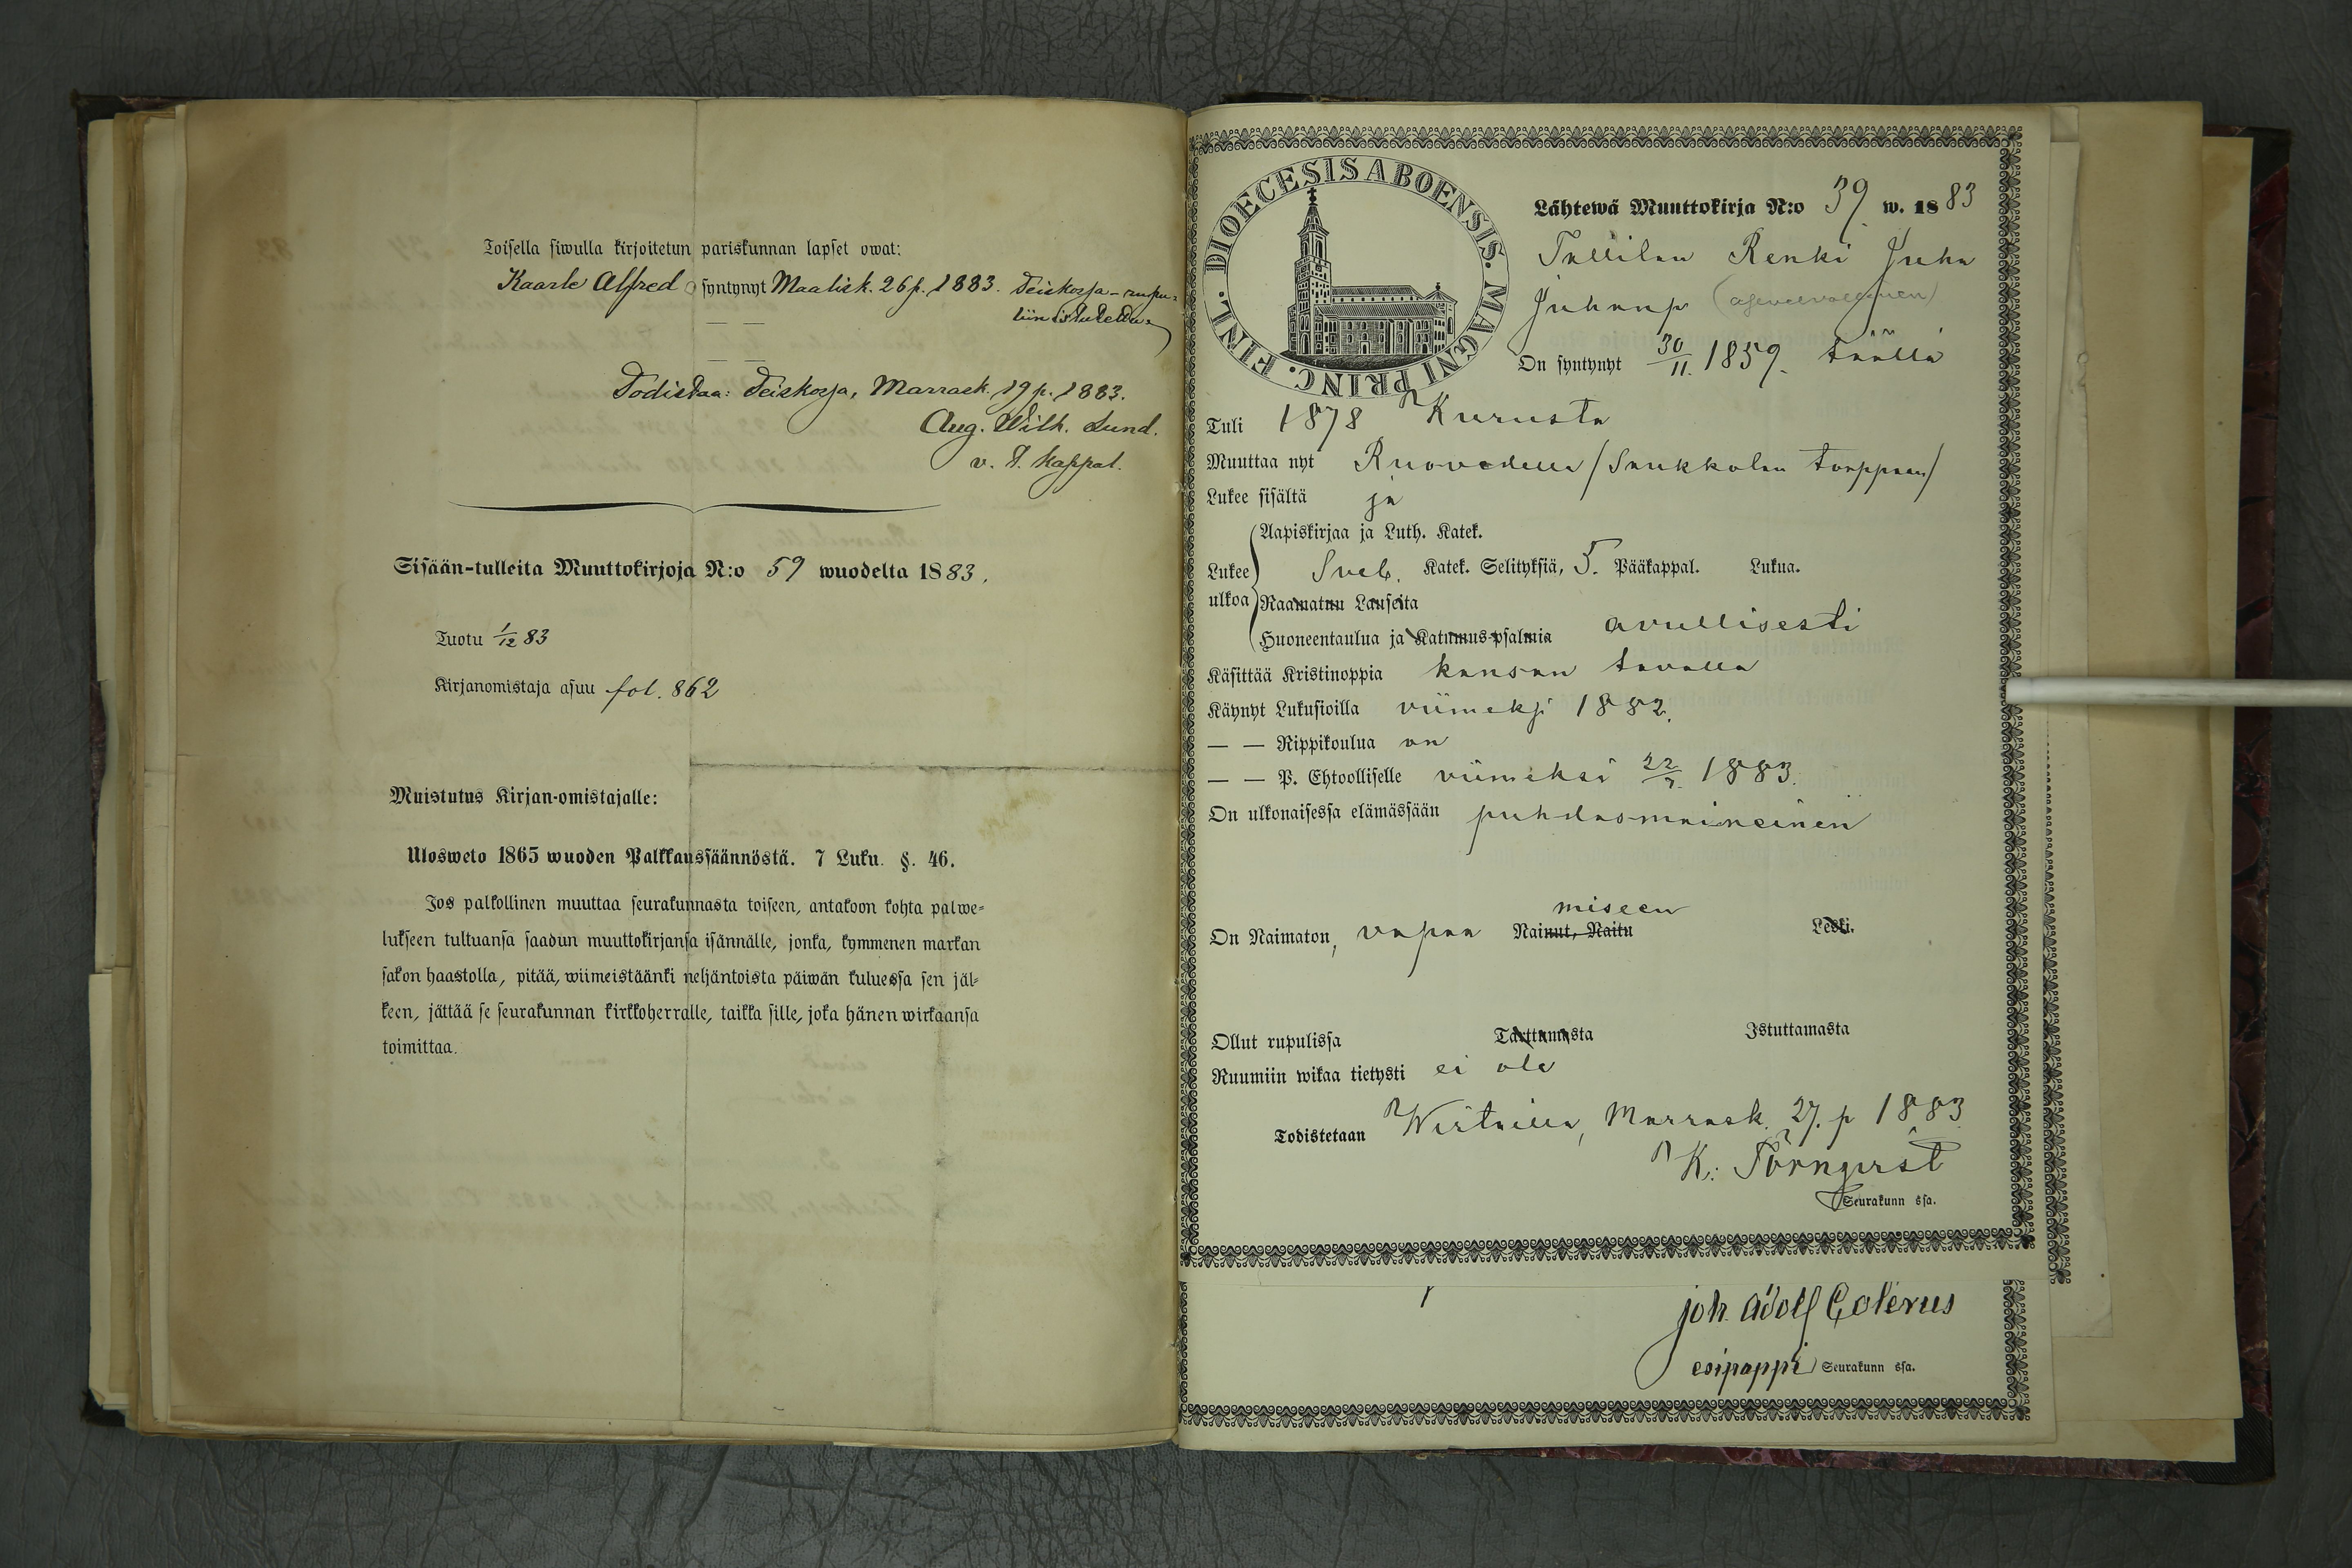 Toisella siwulla kirjoitetun pariskunnan lapset owat:
Kaarle Alfred syntynyt Maalisk. 26 p. 1883. Teiskossa - rupu-
liin istutettu.
— —
— —
Todistaa: Teiskossa, Marrask. 19 p. 1883.
Aug. Wilh. Lund.
v. t. kappal.
Sisään-tulleita Muuttokirjoja N:o 59 wuodelta 1883.
Tuotu 1/12 83
Kirjanomistaja asuu fol. 862
Muistutus Kirjan-omistajalle:
Ulosweto 1865 wuoden Palkkaussäännöstä. 7 Luku. §. 46.
Jos palkollinen muuttaa seurakunnasta toiseen, antakoon kohta palwe-
lukseen tultuansa saadun muuttokirjansa isännälle, jonka, kymmenen markan
sakon haastolla, pitää, wiimeistäänki neljäntoista päiwän kuluessa sen jäl-
keen, jättää se seurakunnan kirkkoherralle, taikka sille, joka hänen wirkaansa
toimittaa.
DIOECESIS ABOENSIS. MAGNI PRINC. FINL.
Lähtewä Muuttokirja N:o 39 w. 1883
Tallilan Renki Juha
Juhanp (asevelvollinen)
On syntynyt 30/11. 1859. täällä
Tuli 1878 Kurusta
Muuttaa nyt Ruovedelle /Saukkolan torppaan/
Lukee sisältä ja
Aapiskirjaa ja Luth. Katek.
Lukee Sveb. Katek. Selityksiä, 5. Pääkappal. Lukua.
ulkoa Raamatun Lauseita
Huoneentaulua ja Katumus-psalmia avullisesti
Käsittää Kristinoppia kansan tavalla
Käynyt Lukusioilla viimeksi 1882.
— — Rippikoulua on
— — P. Ehtoolliselle viimeksi 22/7. 1883.
On ulkonaisessa elämässään puhdasmaineinen
miseen
On Naimaton, vapaa Nainut, Naitu Leski.
Ollut rupulissa Tarttumasta Istuttamasta
Ruumiin wikaa tietysti ei ole
Todistetaan Wirtailla, Marrask. 27. p 1883
K: Törnqvist
Seurakunn ssa.
joh. Adolf Colerus
esipappi Seurakunn ssa.